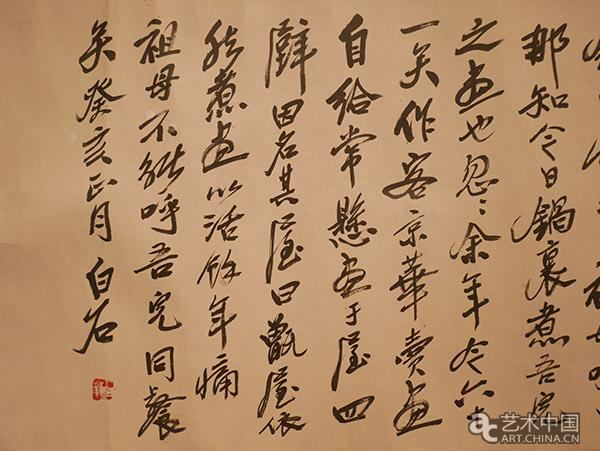 那知今日鍋裏煮吾兒
之畫也忽〻余年今六十
一矣作客京華賣畫
自給常懸畫于屋四
壁因名其屋曰甑屋依
然煮畫以活餘年痛
祖母不能呼吾兒同餐
矣癸亥正月白石
ac 艺术中国
ART.CHINA.CN